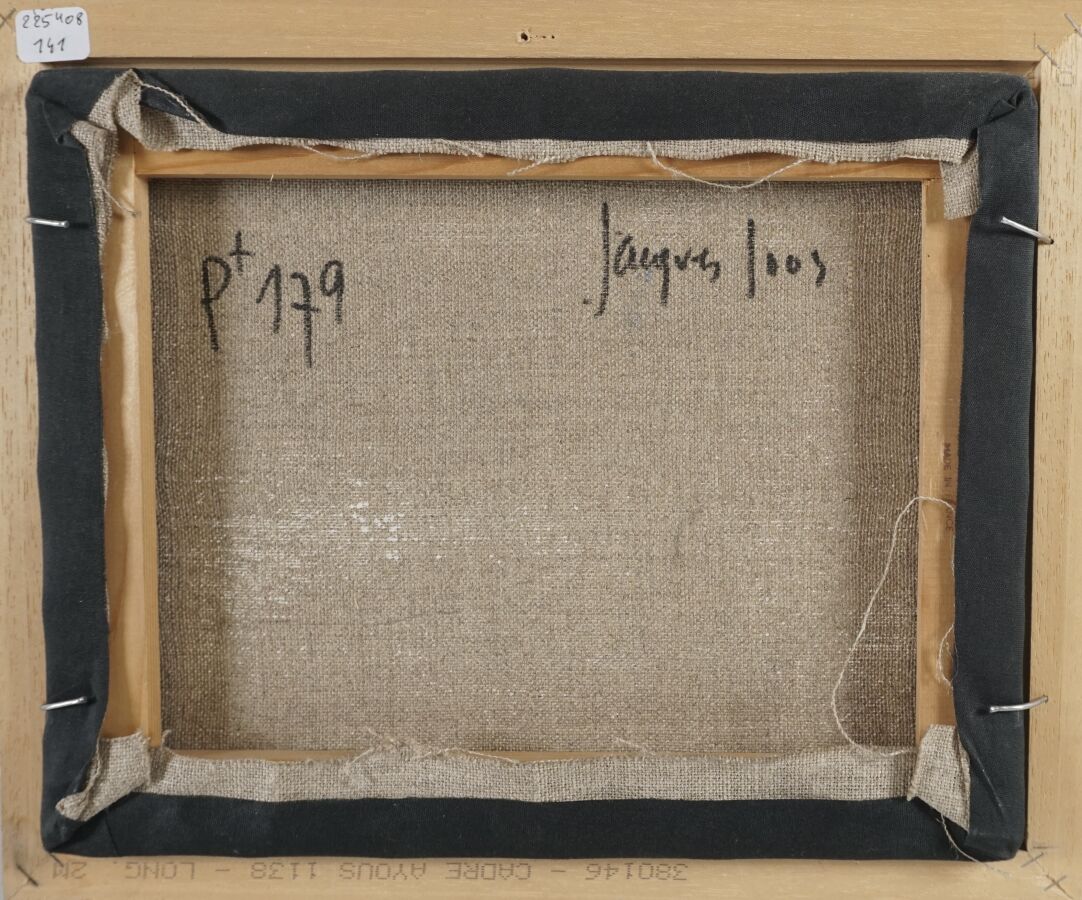 225408
141
P+ 179
Jacques Joos
MADE IN
380146 - CADRE AYOUS 1138 - LONG. 2M